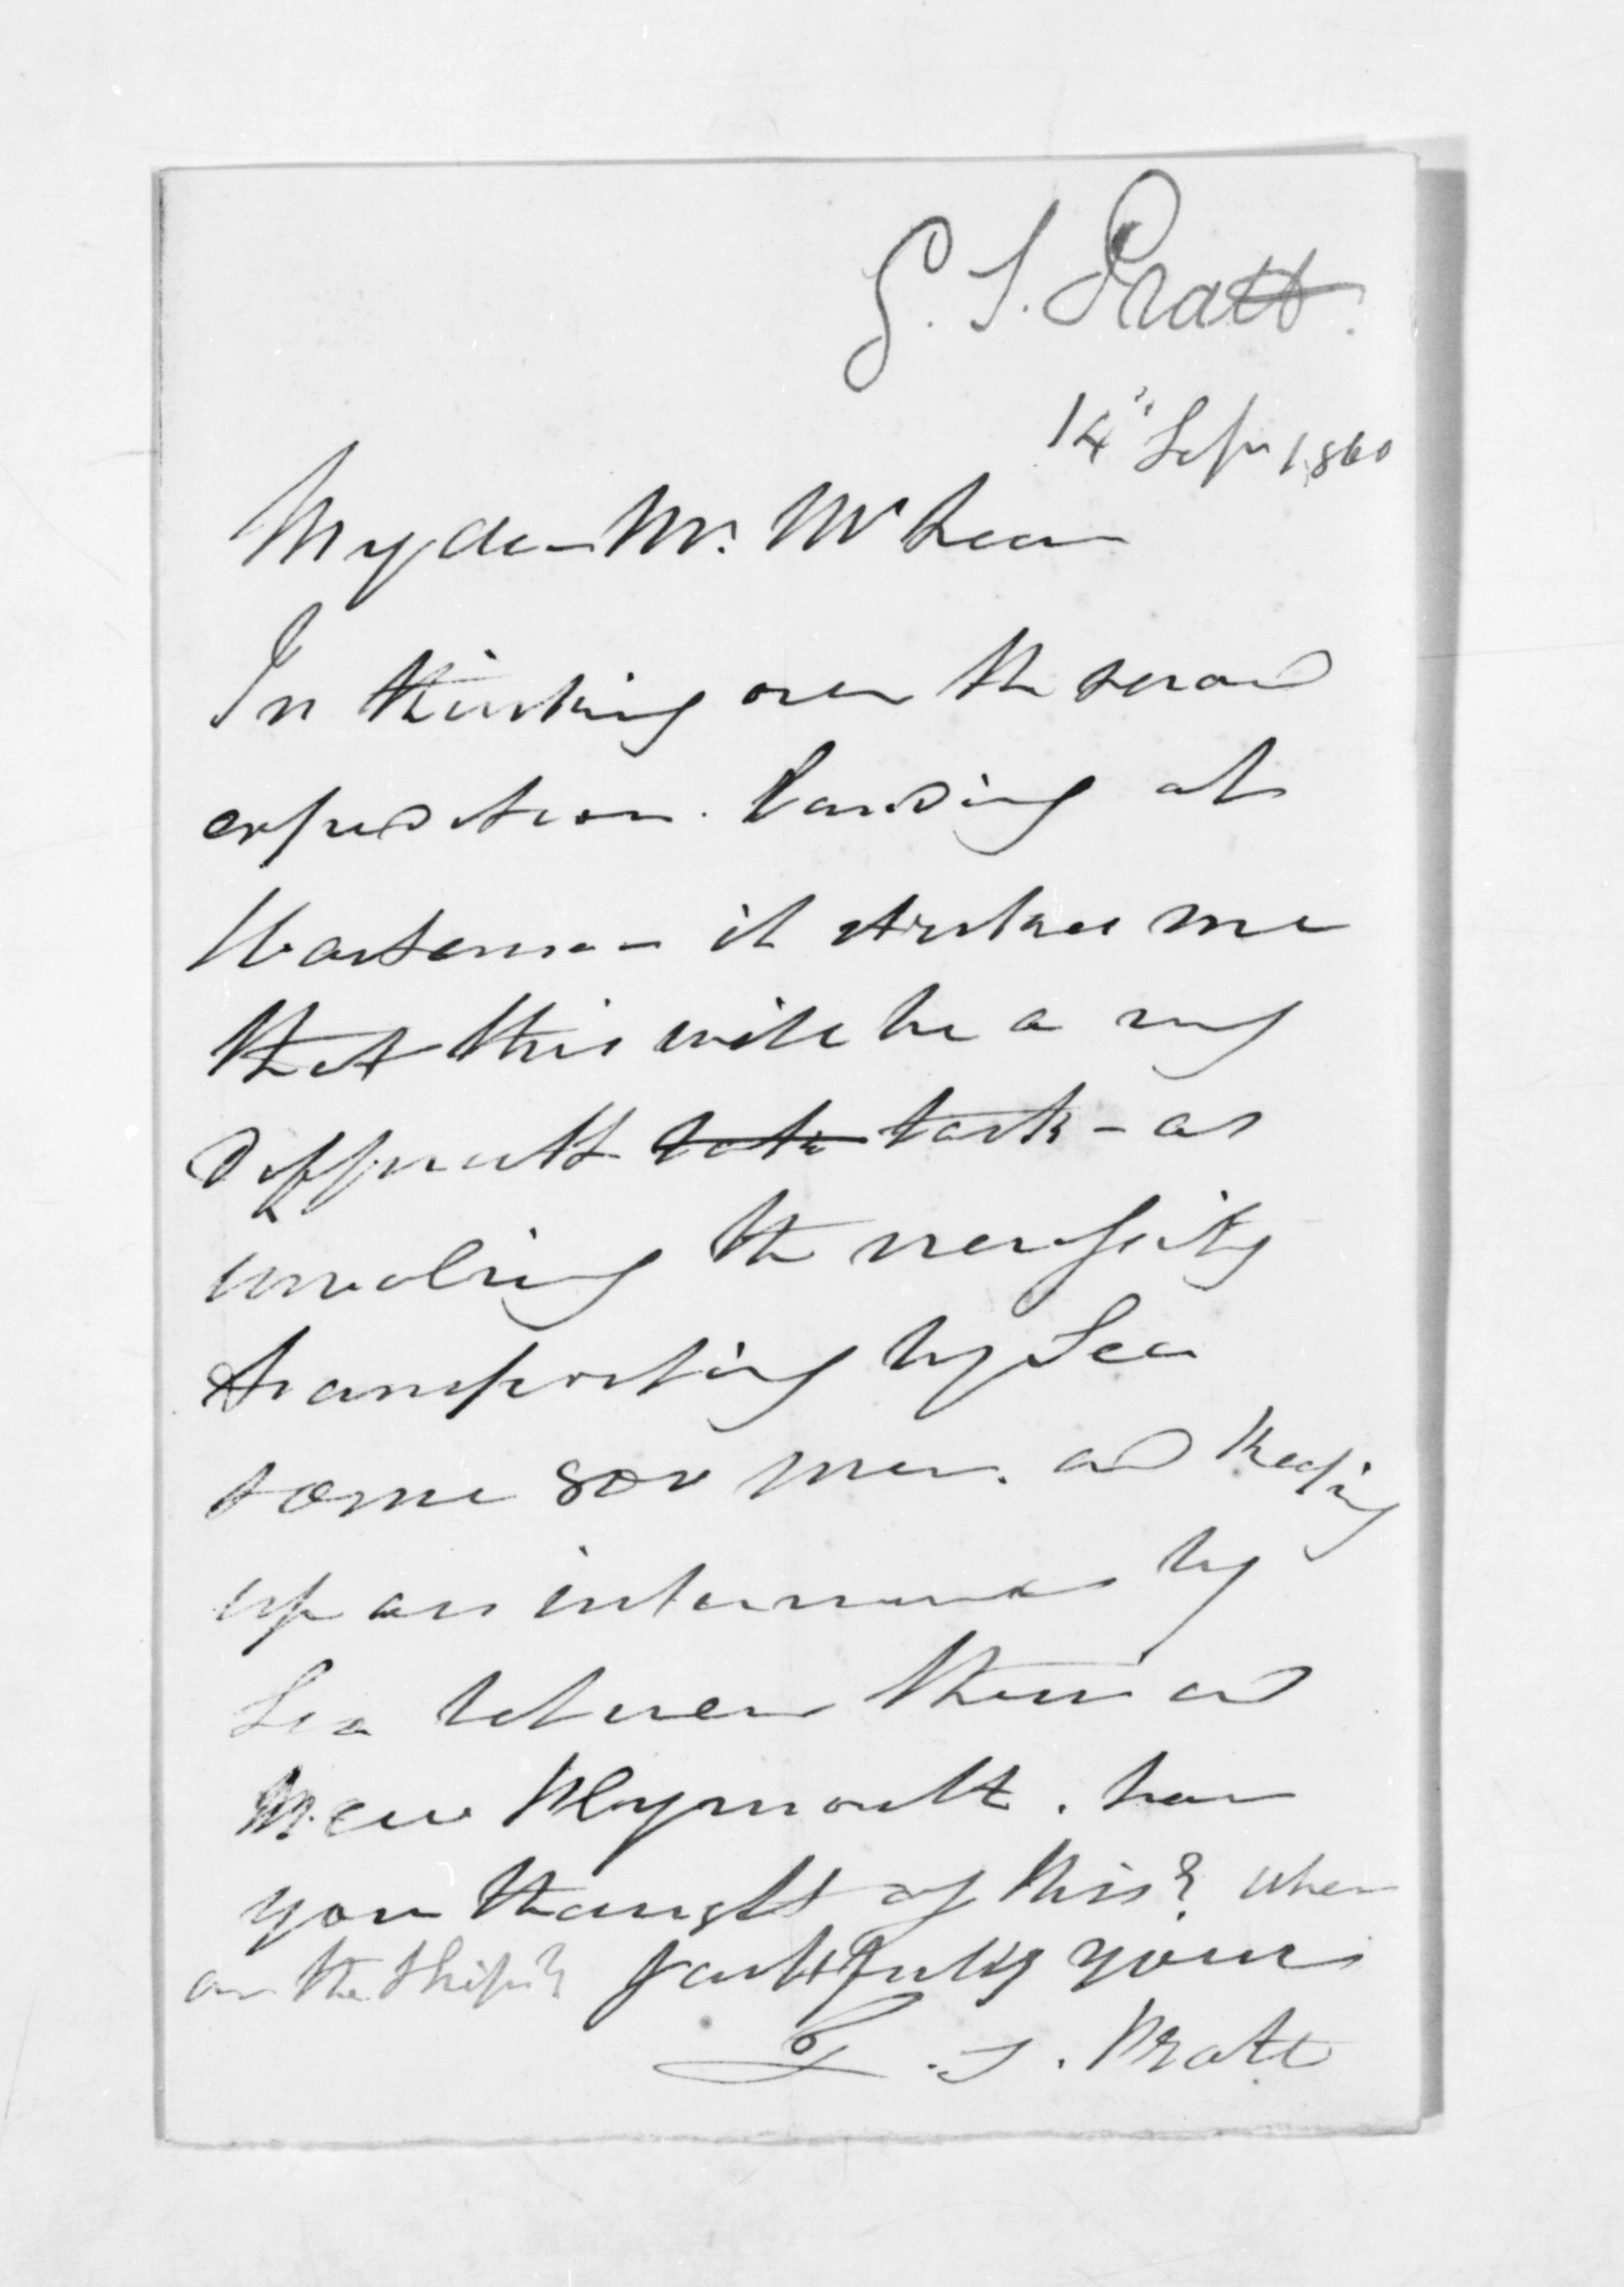 G. S. Pratt.
14" Sepr 1860
My dear Mr. McLean
In thinking over the second
expedition. landing at
it strikes me
that this will be a very
difficult task - as
involving the necessity
transporting by Sea
some 800 men. and keeping
up an intercourse by
Sea between them and
New Plymouth. have
you thought of this? Where
are the ships? faithfully yours
T. S. Pratt